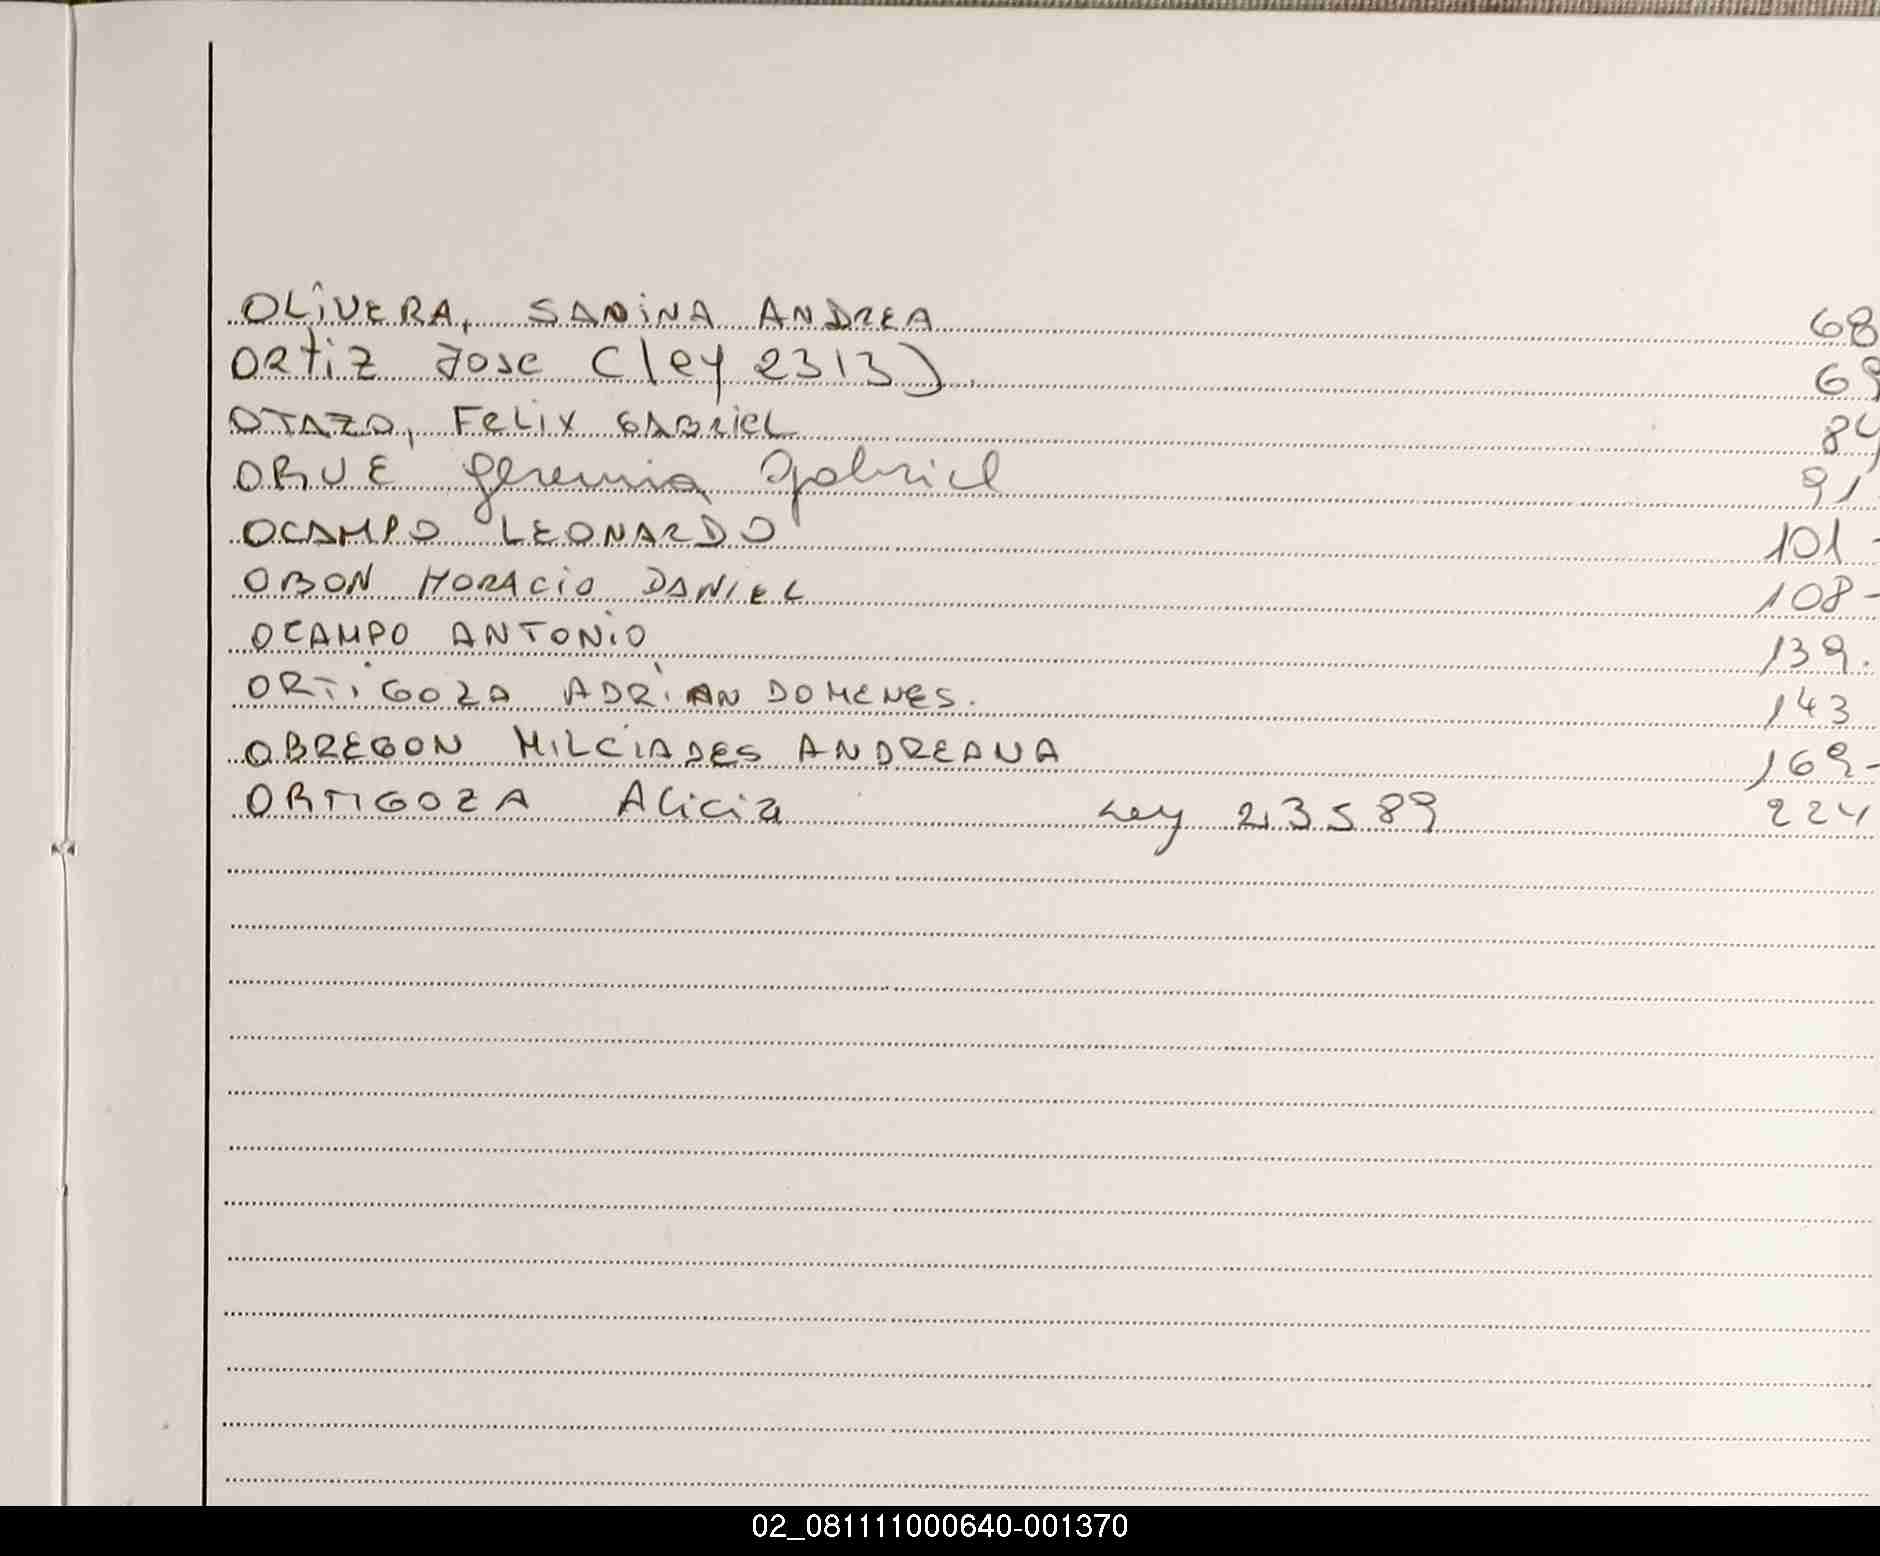 OLIVERA, SANINA ANDREA 68
ORTIZ JOSE (ley 2313) 69
OTAZO, FELIX GABRIEL 84
ORUE Geremia Gabriel 91
OCAMPO LEONARDO 101 -
OBON HORACIO DANIEL 108 -
OCAMPO ANTONIO 139.
ORTIGOZA ADRIAN DOMENES. 143
OBREGON MILCIADES ANDREANA 169-
ORTIGOZA Alicia Ley 23589 224
02_081111000640-001370